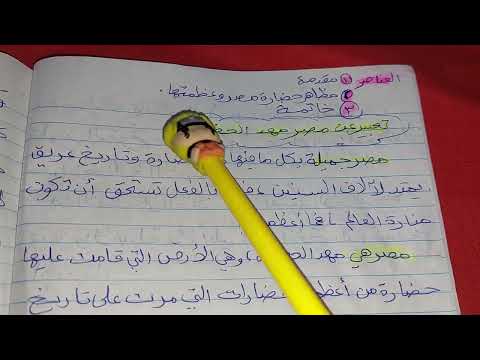 العناصر ① مقدمة
② مظاهر حضارة مصر وعظمتها.
③ خاتمة
تعبير عن مصر مهد
مصر جميلة بكل ما فيها وتاريخ عريق
يمتد لآلاف السنين بالفعل تستحق أن تكون
منارة العالم
مصر هي مهد وهي الأرض التي قامت عليها
حضارة من أعظم التي مرت على تاريخ